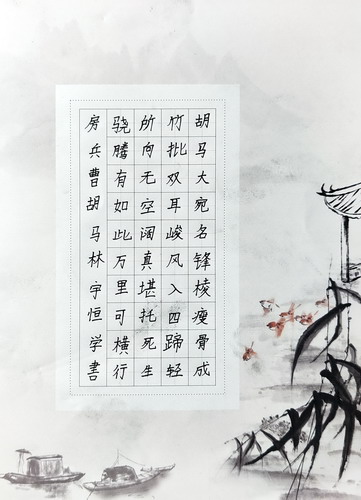 胡马大宛名锋棱瘦骨成
竹批双耳峻风入四蹄轻
所向无空阔真堪托死生
骁腾有如此万里可横行
房兵曹胡马林宇恒学书